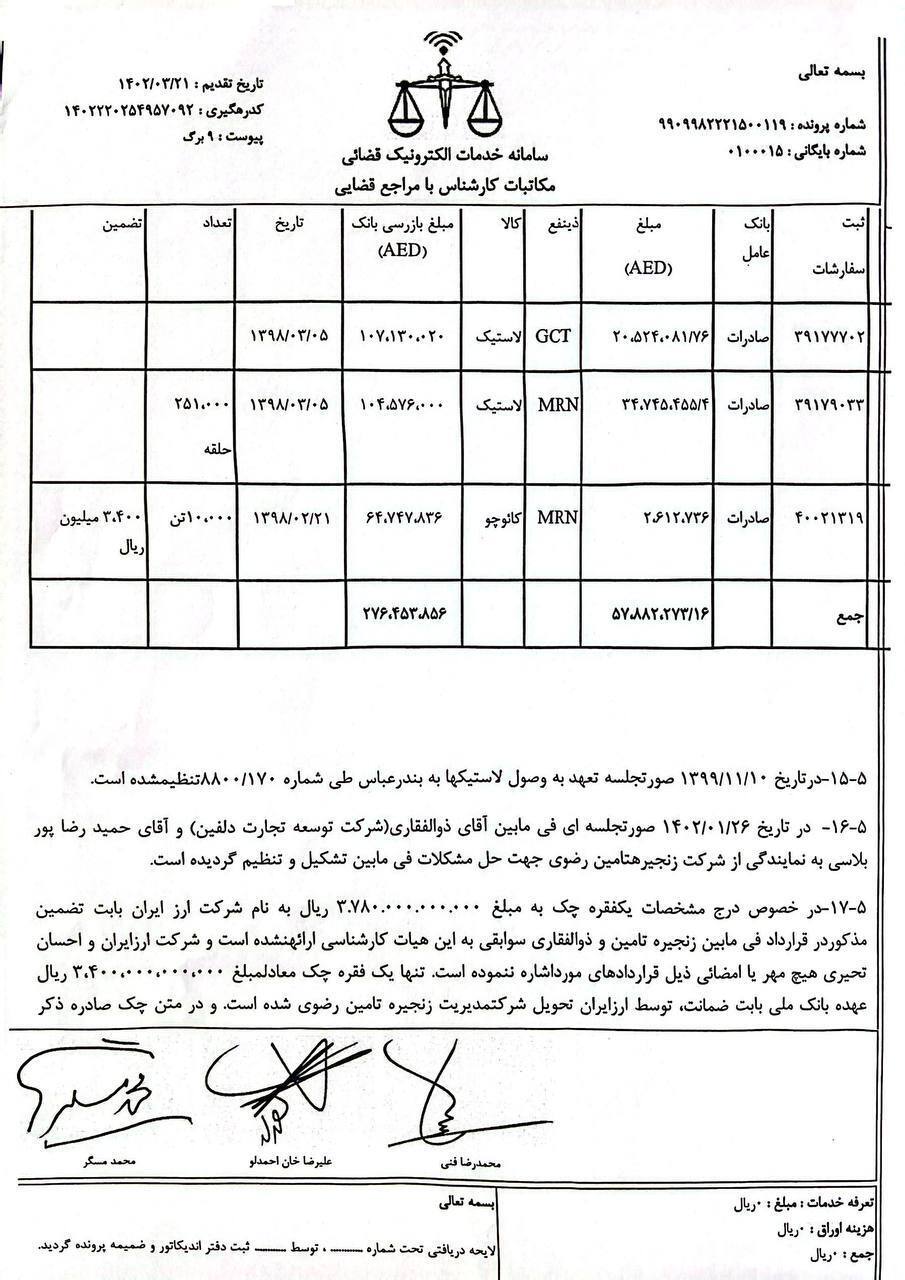 بسمه تعالی
شماره پرونده : ۹۹۰۹۹۸۲۲۲۱۵۰۰۱۱۹
شماره بایگانی : ۰۱۰۰۰۱۵
سامانه خدمات الکترونیک قضائی
مکاتبات کارشناس با مراجع قضایی
تاریخ تقدیم : ۱۴۰۲/۰۳/۲۱
کدرهگیری : ۱۴۰۲۲۲۰۲۵۴۹۵۷۰۹۲
پیوست : ۹ برگ
ثبت سفارشات | بانک عامل | مبلغ (AED) | ذینفع | کالا | مبلغ بازرسی بانک (AED) | تاریخ | تعداد | تضمین
۳۹۱۷۷۷۰۲ | صادرات | ۲۰،۵۲۴،۰۸۱/۷۶ | GCT | لاستیک | ۱۰۷،۱۳۰،۰۲۰ | ۱۳۹۸/۰۳/۰۵
۳۹۱۷۹۰۳۳ | صادرات | ۳۴،۷۴۵،۴۵۵/۴ | MRN | لاستیک | ۱۰۴،۵۷۶،۰۰۰ | ۱۳۹۸/۰۳/۰۵ | ۲۵۱،۰۰۰ حلقه
۴۰۰۲۱۳۱۹ | صادرات | ۲،۶۱۲،۷۳۶ | MRN | کائوچو | ۶۴،۷۴۷،۸۳۶ | ۱۳۹۸/۰۲/۲۱ | ۱۰،۰۰۰تن | ۳،۴۰۰ میلیون ریال
جمع | ۵۷،۸۸۲،۲۷۳/۱۶ | ۲۷۶،۴۵۳،۸۵۶
۱۵-۵-درتاریخ ۱۳۹۹/۱۱/۱۰ صورتجلسه تعهد به وصول لاستیکها به بندرعباس طی شماره ۸۸۰۰/۱۷۰تنظیمشده است.
۱۶-۵- در تاریخ ۱۴۰۲/۰۱/۲۶ صورتجلسه ای فی مابین آقای ذوالفقاری(شرکت توسعه تجارت دلفین) و آقای حمید رضا پور
بلاسی به نمایندگی از شرکت زنجیرهتامین رضوی جهت حل مشکلات فی مابین تشکیل و تنظیم گردیده است.
۱۷-۵-در خصوص درج مشخصات یکفقره چک به مبلغ ۳.۷۸۰.۰۰۰.۰۰۰.۰۰۰ ریال به نام شرکت ارز ایران بابت تضمین
مذکوردر قرارداد فی مابین زنجیره تامین و ذوالفقاری سوابقی به این هیات کارشناسی ارائهنشده است و شرکت ارزایران و احسان
تحیری هیچ مهر یا امضائی ذیل قراردادهای مورداشاره ننموده است. تنها یک فقره چک معادلمبلغ ۳،۴۰۰،۰۰۰،۰۰۰،۰۰۰ ریال
عهده بانک ملی بابت ضمانت، توسط ارزایران تحویل شرکتمدیریت زنجیره تامین رضوی شده است. و در متن چک صادره ذکر
محمدرضا فنی
علیرضا خان احمدلو
محمد مسگر
تعرفه خدمات : مبلغ : ۰ریال
هزینه اوراق : ۰ریال
جمع : ۰ریال
بسمه تعالی
لایحه دریافتی تحت شماره ......... ، توسط ......... ثبت دفتر اندیکاتور و ضمیمه پرونده گردید.